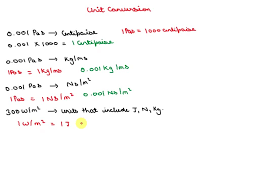 Unit Conversion
0.001 Pas → Centipoise   1Pas = 1000 Centipoise
0.001 x 1000 = 1 Centipoise
0.001 Pas → Kg/ms
1Pas = 1 Kg/ms   0.001 Kg/ms
0.001 Pas → Ns/m²
1Pas = 1 Ns/m²   0.001 Ns/m²
300 W/m² → units that include J, N, Kg.
1 W/m² = 1 J